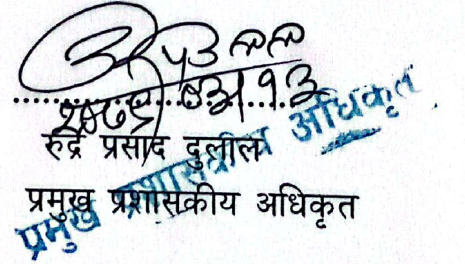 रुद्र प्रसाद दुलाल
प्रमुख प्रशासकीय अधिकृत
प्रमुख प्रशासकीय अधिकृत